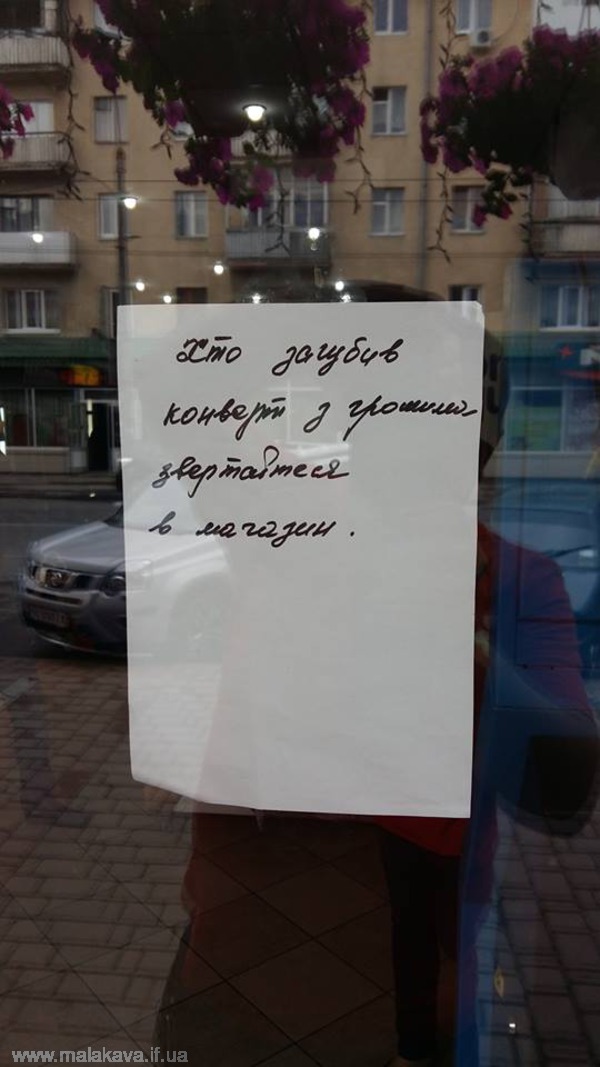 Хто загубив
конверт з грошима
звертайтеся
в магазин.
www.malakava.if.ua